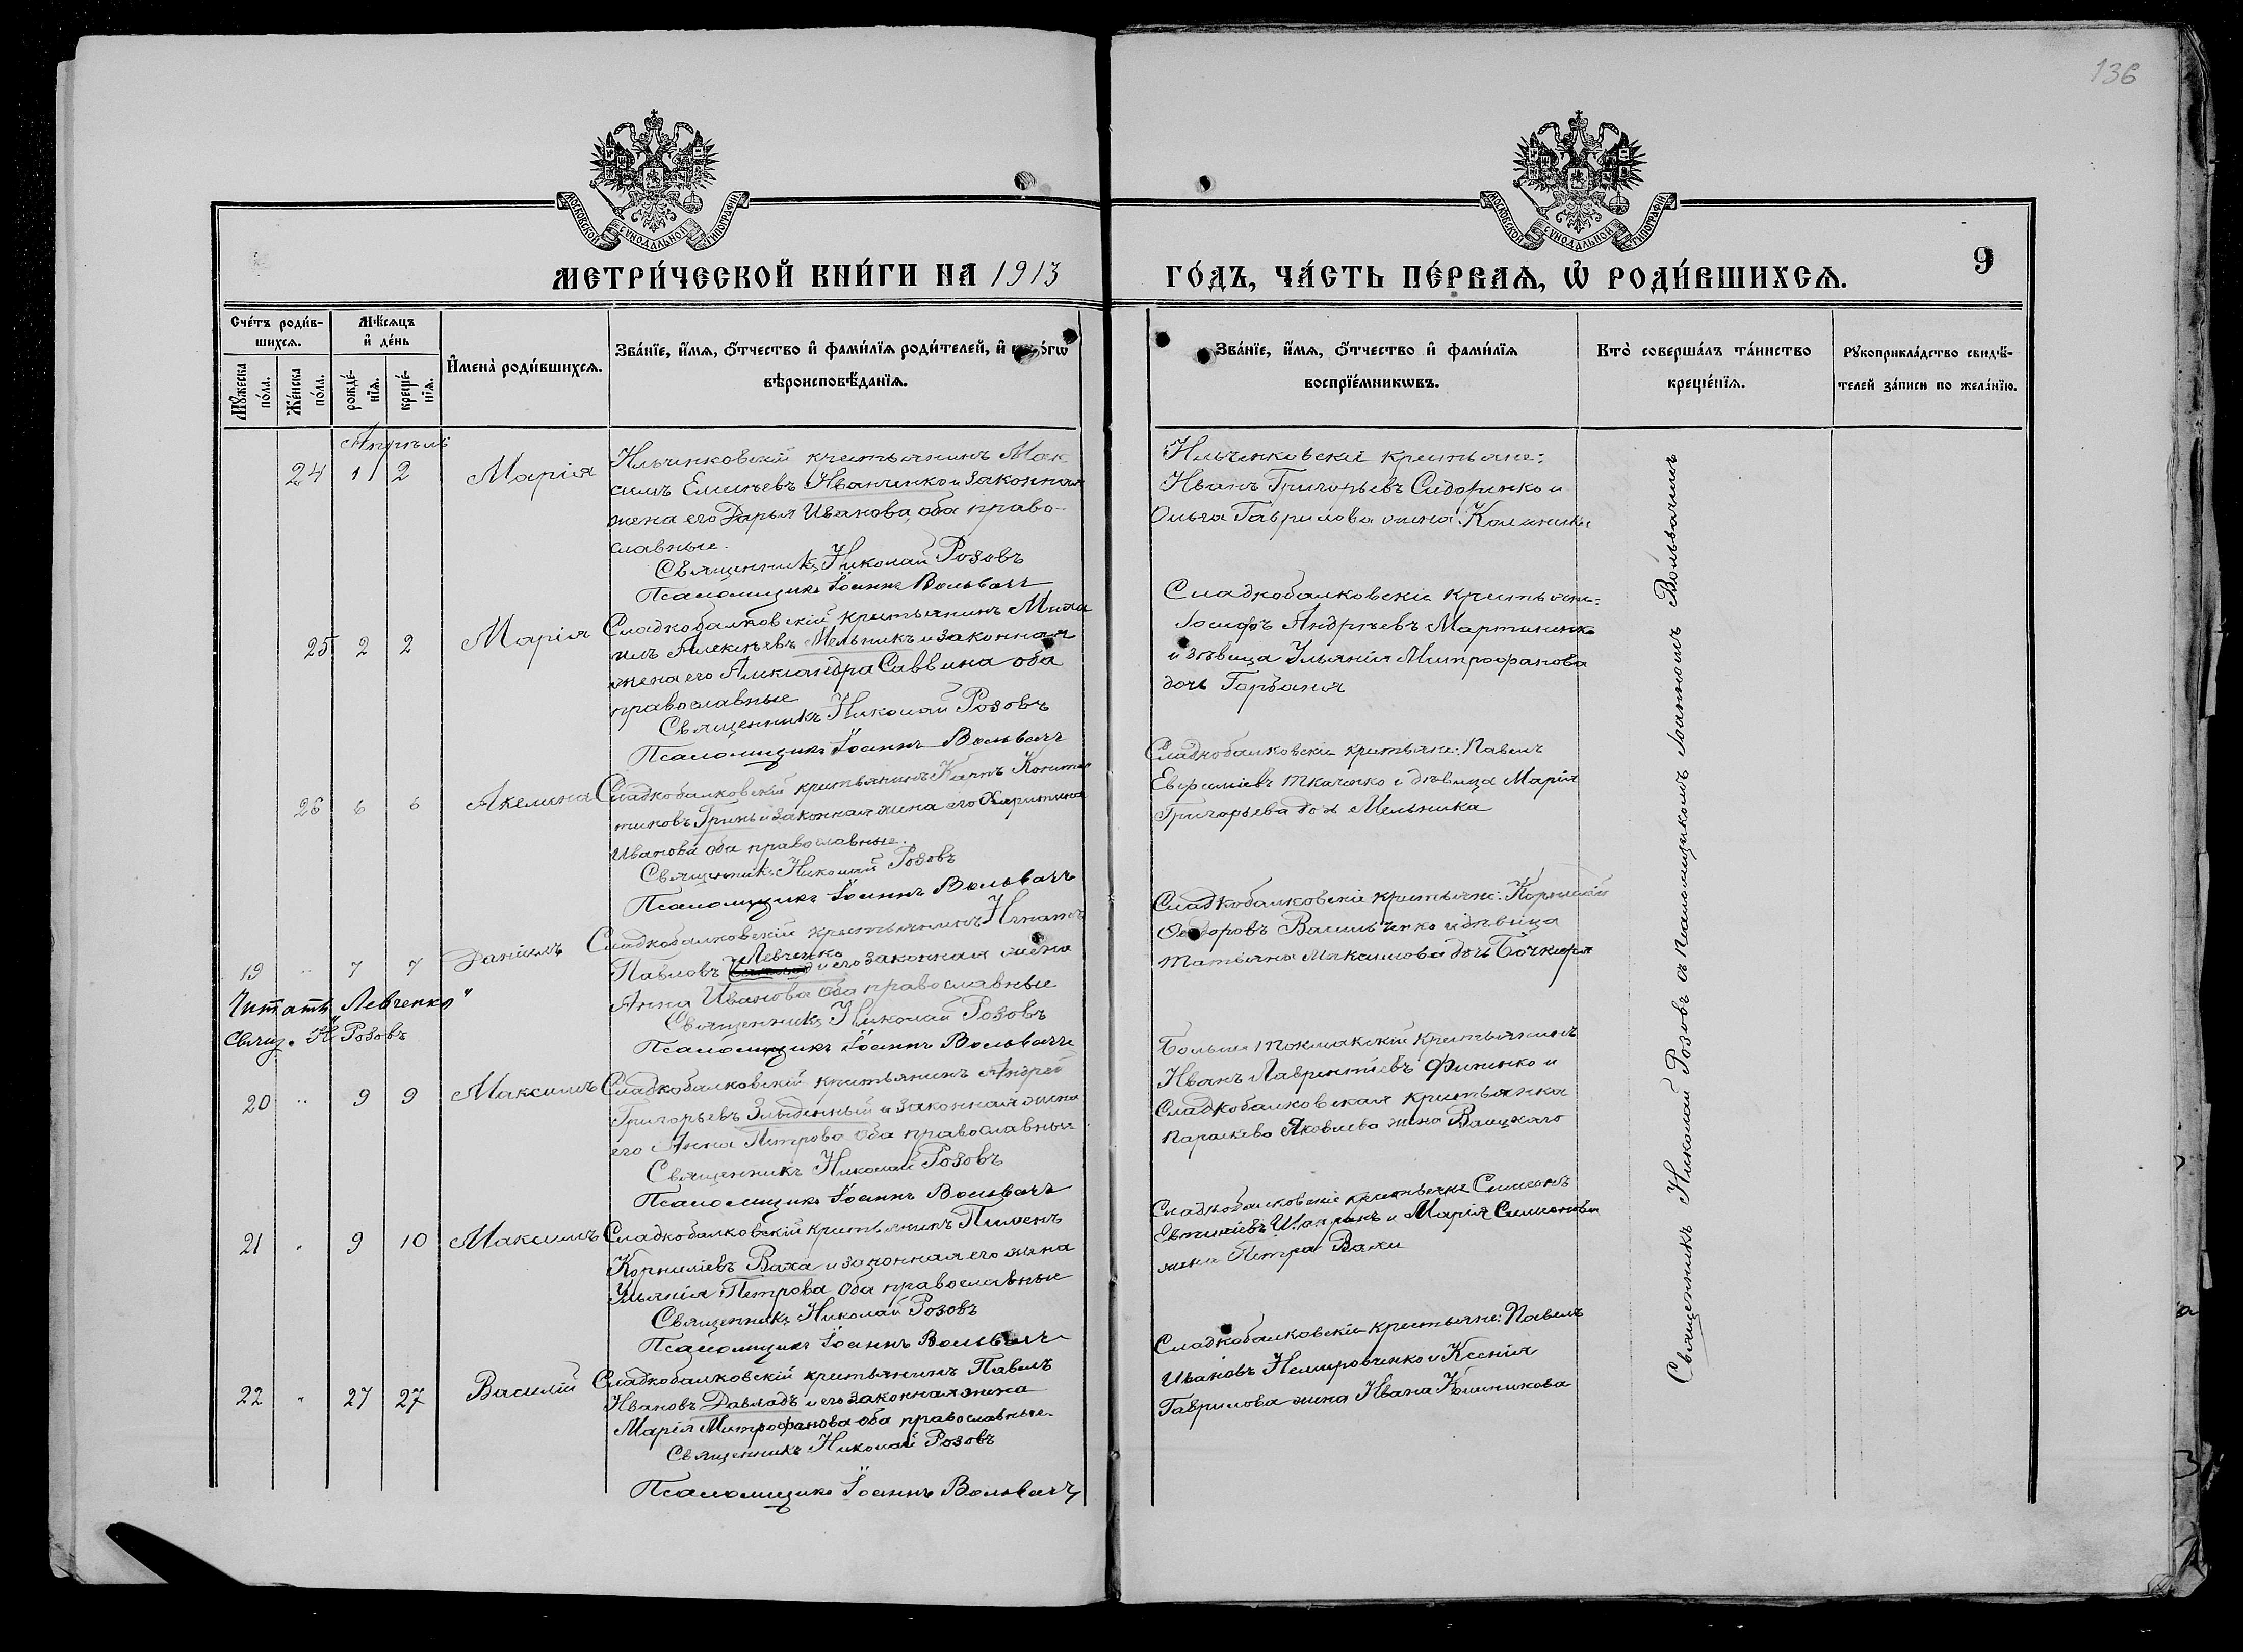 136
МОСКОВСКОЙ СУНОДАЛЬНОЙ ТИПОГРАФІИ
МОСКОВСКОЙ СУНОДАЛЬНОЙ ТИПОГРАФІИ
МЕТРИ́ЧЕСКОЙ КНИ́ГИ НА 1913
ГО́ДЪ, ЧА́СТЬ ПЕ́РВАѦ, Ѡ҆ РОДИ́ВШИХСѦ.
9
Сче́тъ роди́в-
шихсѧ.
Мѣ́сѧцъ
и҆ де́нь
Мꙋ́жеска
по́ла.
Же́нска
по́ла.
рожде́-
нїѧ.
креще́-
нїѧ.
И҆мена̀ роди́вшихсѧ.
Зва́нїе, и҆́мѧ, ѻ҆́тчество и҆ фами́лїѧ роди́телей, и҆
вѣроисповѣ́данїѧ.
Зва́нїе, и҆́мѧ, ѻ҆́тчество и҆ фами́лїѧ
воспрїе́мникѡвъ.
Кто̀ соверша́лъ та́инство
креще́нїѧ.
Рꙋкоприкла́дство свидѣ́-
телей за́писи по жела́нїю.
Апрѣль
24 1 2 Марія
Ильченковскій крестьянинъ Мак
симъ Емильевъ Иванченко и законная
жена его Дарья Иванова, оба право-
славные.
Священникъ Николай Розовъ
Псаломщикъ Іоаннъ Вольвачъ
Ильченковскіе крестьяне:
Иванъ Григорьевъ Сидоренко и
Ольга Гаврилова жена
25 2 2 Марія
Сладкобалковскій крестьянинъ Миха
илъ Алексѣевъ Мельникъ и законная
жена его Александра Саввина оба
православные
Священникъ Николай Розовъ
Псаломщикъ Іоаннъ Вольвачъ
Сладкобалковскіе крестьяне:
Іосифъ Андреевъ Мартыненко
и дѣвица Ульянія Митрофанова
дочь Горбаня
26 6 6 Акелина
Сладкобалковскій крестьянинъ Карпъ
Гринь и законная жена его Харитина
Иванова оба православные.
Священникъ Николай Розовъ
Псаломщикъ Іоаннъ Вольвачъ
Сладкобалковскіе крестьяне: Павелъ
Евфиміевъ Ткаченко и дѣвица Марія
Григорьева дочь Мельника
19 " 7 7 Даніилъ
Сладкобалковскій крестьянинъ Игнатъ
Левченко
Павловъ и его законная жена
Анна Иванова оба православные
Священникъ Николай Розовъ
Псаломщикъ Іоаннъ Вольвачъ
Читать „Левченко"
Свящ. Н. Розовъ
Сладкобалковскіе крестьяне: Корнилій
Ѳедоровъ Васильченко и дѣвица
Татьяна Максимова дочь Бочкаря
20 " 9 9 Максимъ
Сладкобалковскій крестьянинъ Андрей
Григорьевъ Злыденный и законная жена
его Анна Петрова оба православные
Священникъ Николай Розовъ
Псаломщикъ Іоаннъ Вольвачъ
Больше Токмакскій крестьянинъ
Иванъ Лаврентіевъ Финенко и
Сладкобалковская крестьянка
Параскева Яковлева жена
21 " 9 10 Максимъ
Сладкобалковскій крестьянинъ Пименъ
Корниліевъ Ваха и законная его жена
Ульянія Петрова оба православные
Священникъ Николай Розовъ
Псаломщикъ Іоаннъ Вольвачъ
Сладкобалковскіе крестьяне Симеонъ
и Марія Симеонова
жена Петра Вахи
22 " 27 27 Василій
Сладкобалковскій крестьянинъ Павелъ
Ивановъ Давладъ и его законная жена
Марія Митрофанова оба православные.
Священникъ Николай Розовъ
Псаломщикъ Іоаннъ Вольвачъ
Сладкобалковскіе крестьяне: Павелъ
Ивановъ Немировченко и Ксенія
Гаврилова жена Ивана
Священникъ Николай Розовъ съ псаломщикомъ Іоанномъ Вольвачемъ